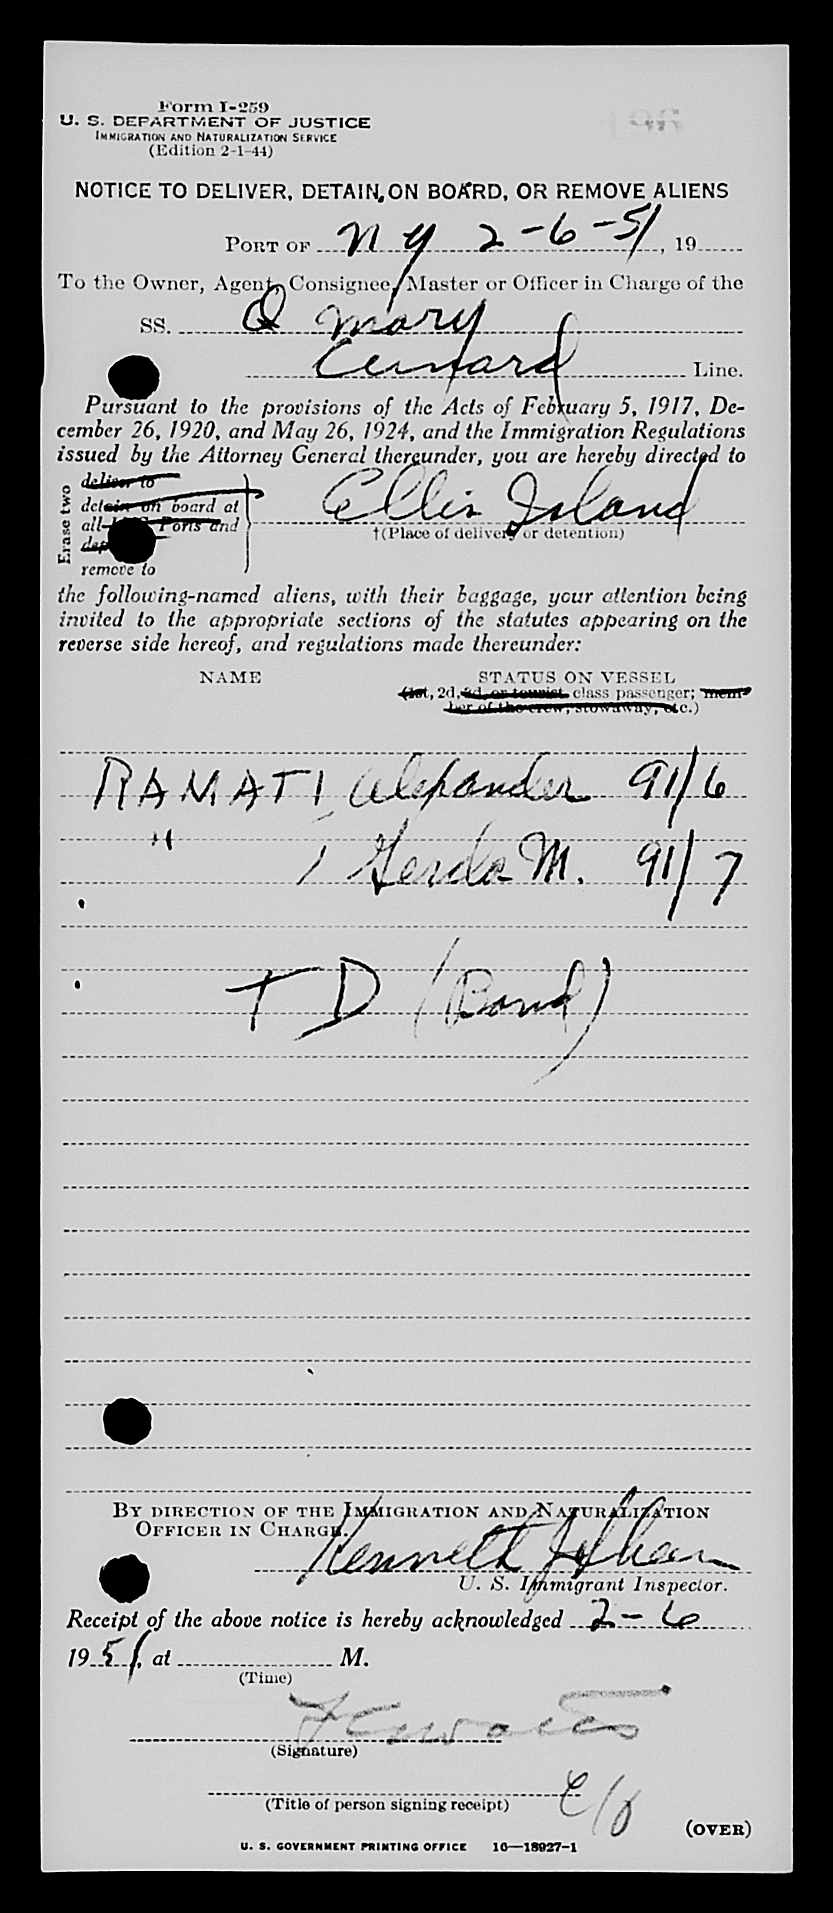 Form I-259
U. S. DEPARTMENT OF JUSTICE
IMMIGRATION AND NATURALIZATION SERVICE
(Edition 2-1-44)
NOTICE TO DELIVER, DETAIN ON BOARD, OR REMOVE ALIENS
PORT OF N Y 2-6-51, 19
To the Owner, Agent, Consignee, Master or Officer in Charge of the
SS. Q Mary
Cunard Line.
Pursuant to the provisions of the Acts of February 5, 1917, De-
cember 26, 1920, and May 26, 1924, and the Immigration Regulations
issued by the Attorney General thereunder, you are hereby directed to
Erase two
deliver to
detain on board at
all Ports and
remove to
Ellis Island
†(Place of delivery or detention)
the following-named aliens, with their baggage, your attention being
invited to the appropriate sections of the statutes appearing on the
reverse side hereof, and regulations made thereunder:
NAME STATUS ON VESSEL
(1st, 2d, 3d, or tourist class passenger; mem-
ber of the crew, stowaway, etc.)
RAMATI, Alexander 91/6
" , Gerda M. 91/7
T D (Bond)
BY DIRECTION OF THE IMMIGRATION AND NATURALIZATION
OFFICER IN CHARGE.
Kenneth
U. S. Immigrant Inspector.
Receipt of the above notice is hereby acknowledged 2-6
1951, at M.
(Time)
(Signature)
(Title of person signing receipt)
(OVER)
U. S. GOVERNMENT PRINTING OFFICE 16—18927-1